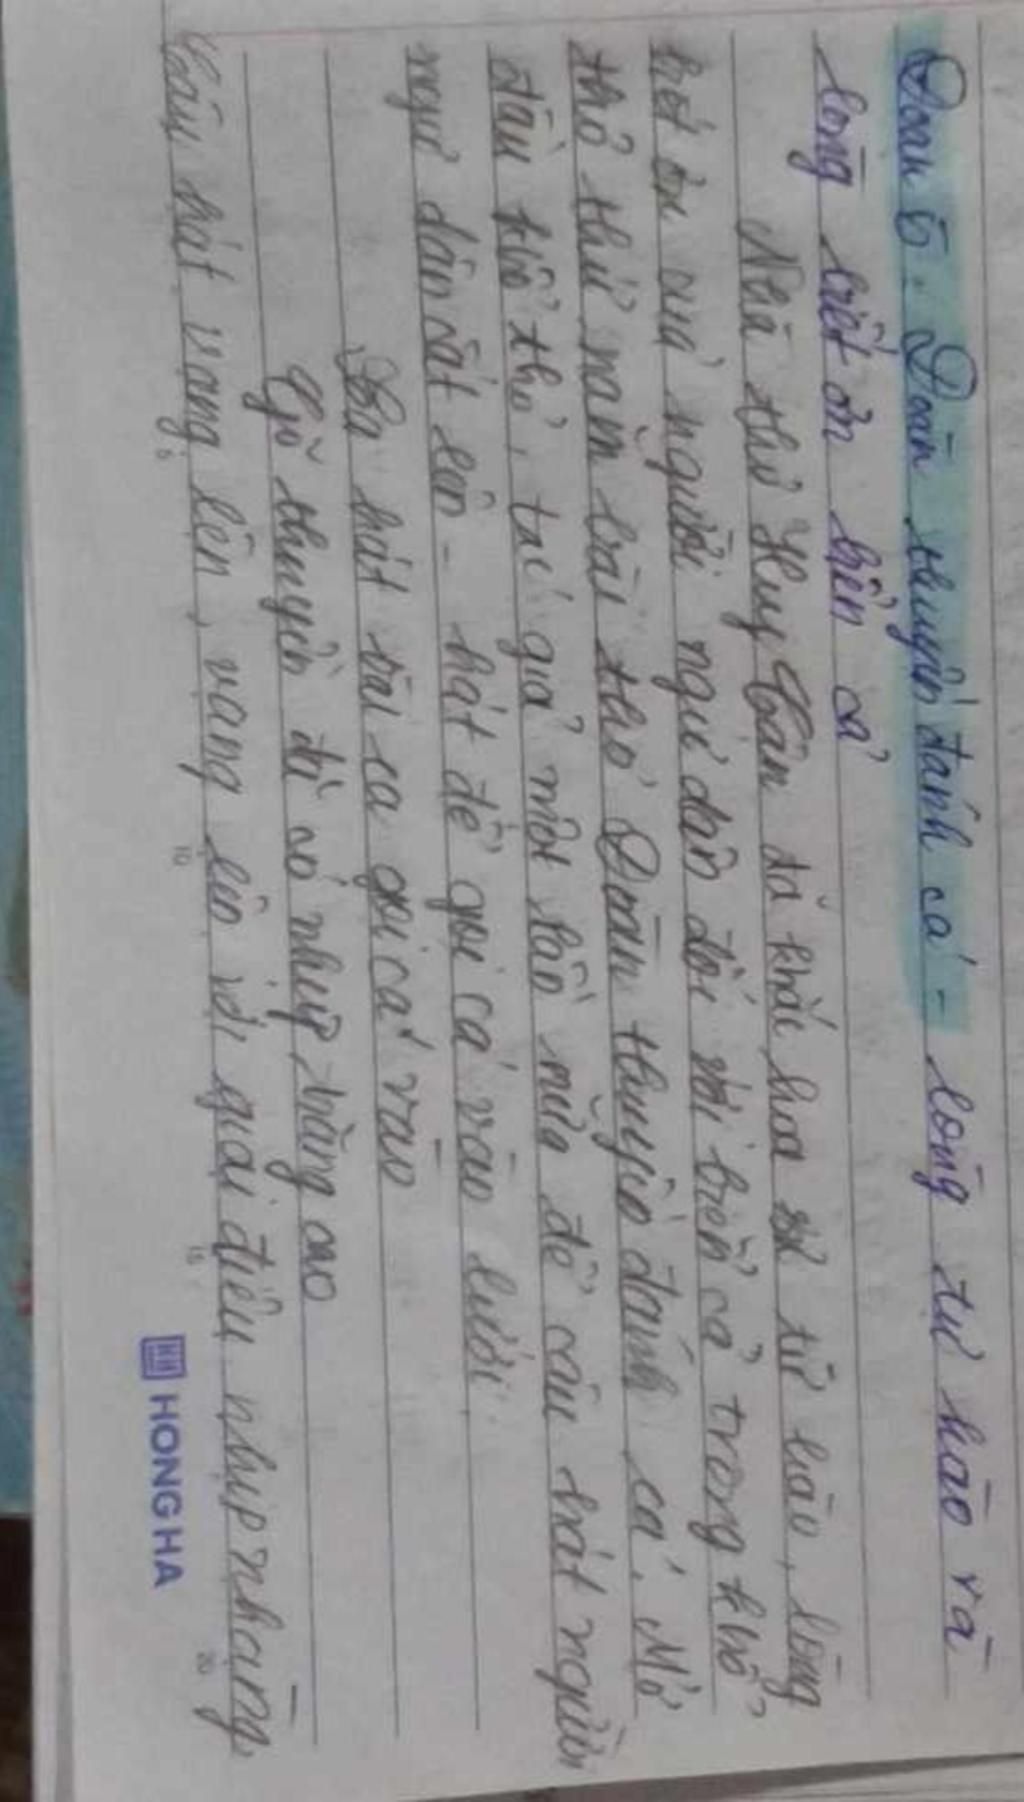 Đoạn 5. Đoàn thuyền đánh cá - lòng tự hào và
lòng biết ơn biển cả
Nhà thơ Huy Cận đã khắc họa sự tự hào, lòng
biết ơn của người ngư dân đối với biển cả trong khổ
thơ thứ năm bài thơ Đoàn thuyền đánh cá. Mở
đầu khổ thơ, tác giả một lần nữa để câu hát người
ngư dân cất lên - hát để gọi cá vào lưới.
Ta hát bài ca gọi cá vào
Gõ thuyền đã có nhịp trăng cao
Câu hát vang lên, vang lên với giai điệu nhịp nhàng,
5
10
15
20
HONG HA